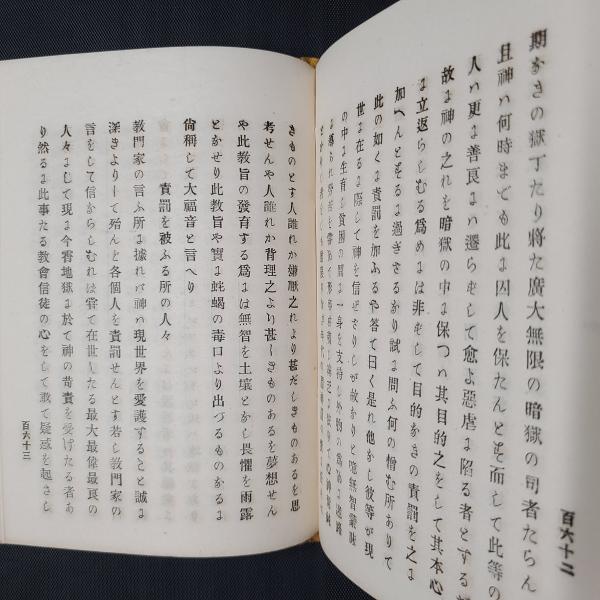 百六十二
期なきの獄丁たり將た廣大無限の暗獄の司者たらん
且神ハ何時までも此ま囚人を保たんとそ而して此等の
人ハ更ま善良まハ遷らそして愈よ惡虐ま陷る者とそる
故ま神の之れを暗獄の中ま保つハ其目的之をして其本心
ま立返らしむる爲めまは非そして目的なきの責罰を之ま
加へんとそるま過ぎさるなり試ま問ふ何の憎む所ありて
此の如くま責罰を加ふるや答て曰く是れ他なし彼等が現
世ま在るま際して神を信ぜさりしが故なりと噫無智蒙昧
の中ま生育し貧困の間ま一身を支持し
きものとす人誰れか嫌厭之れより甚だしきものあるを思
考せんや人誰れか背理之より甚しきものあるを夢想せん
や此教旨の發育する爲まは無智を土壤とかし畏懼を雨露
とかせり此教旨や實ま蛇蝎の毒口より出づるものなるま
尙稱して大福音と言へり
責罰を被ふる所の人々
教門家の言ふ所ま據れハ神ハ現世界を愛護すること誠ま
深きよりして殆んを各個人を責罰せんとす若し教門家の
言をして信ならしむれは甞て在世したる最大最偉最良の
人々まして現ま今霄地獄ま於て神の苛責を受けたる者あ
り然るま此事たる教會信徒の心をして敢て疑惑を起さし
百六十三